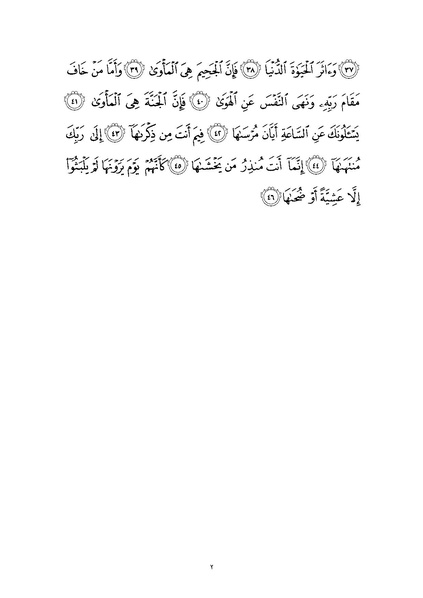 ﴿٣٧﴾ وَءَاثَرَ ٱلْحَيَوٰةَ ٱلدُّنْيَا ﴿٣٨﴾ فَإِنَّ ٱلْجَحِيمَ هِىَ ٱلْمَأْوَىٰ ﴿٣٩﴾ وَأَمَّا مَنْ خَافَ
مَقَامَ رَبِّهِۦ وَنَهَى ٱلنَّفْسَ عَنِ ٱلْهَوَىٰ ﴿٤٠﴾ فَإِنَّ ٱلْجَنَّةَ هِىَ ٱلْمَأْوَىٰ ﴿٤١﴾
يَسْـَٔلُونَكَ عَنِ ٱلسَّاعَةِ أَيَّانَ مُرْسَىٰهَا ﴿٤٢﴾ فِيمَ أَنتَ مِن ذِكْرَىٰهَآ ﴿٤٣﴾ إِلَىٰ رَبِّكَ
مُنتَهَىٰهَآ ﴿٤٤﴾ إِنَّمَآ أَنتَ مُنذِرُ مَن يَخْشَىٰهَا ﴿٤٥﴾ كَأَنَّهُمْ يَوْمَ يَرَوْنَهَا لَمْ يَلْبَثُوٓا۟
إِلَّا عَشِيَّةً أَوْ ضُحَىٰهَا ﴿٤٦﴾
٢